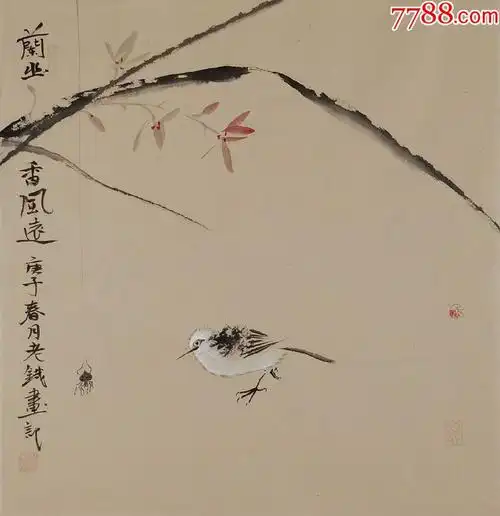 7788.com
蘭幽
香風遠
庚子春月老鐵畫記